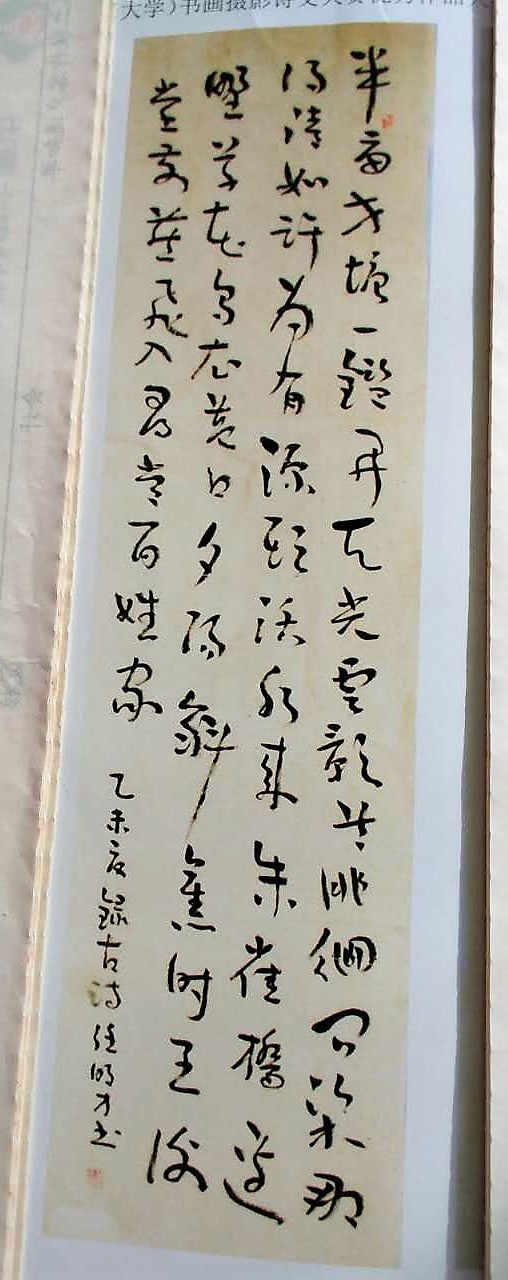 大学)书画摄影诗文大赛优秀作品
半亩方塘一鑑开天光雲影共徘徊问渠那
得清如许为有源头活水来朱雀橋边
野草花乌衣巷口夕阳斜舊时王谢
堂前燕飞入寻常百姓家
乙未夏録古诗任明才书